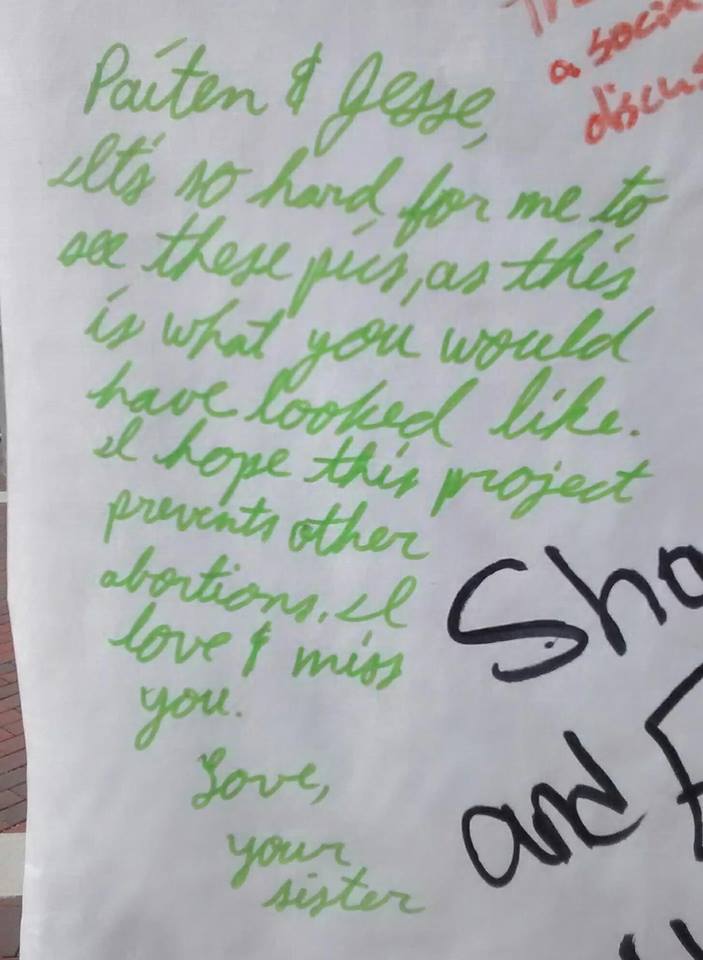 Paiten & Jesse,
It's so hard for me to
see these pics, as this
is what you would
have looked like.
I hope this project
prevents other
abortions. I
love & miss
you.
Love,
your
sister
a socia
discus
Sho
and